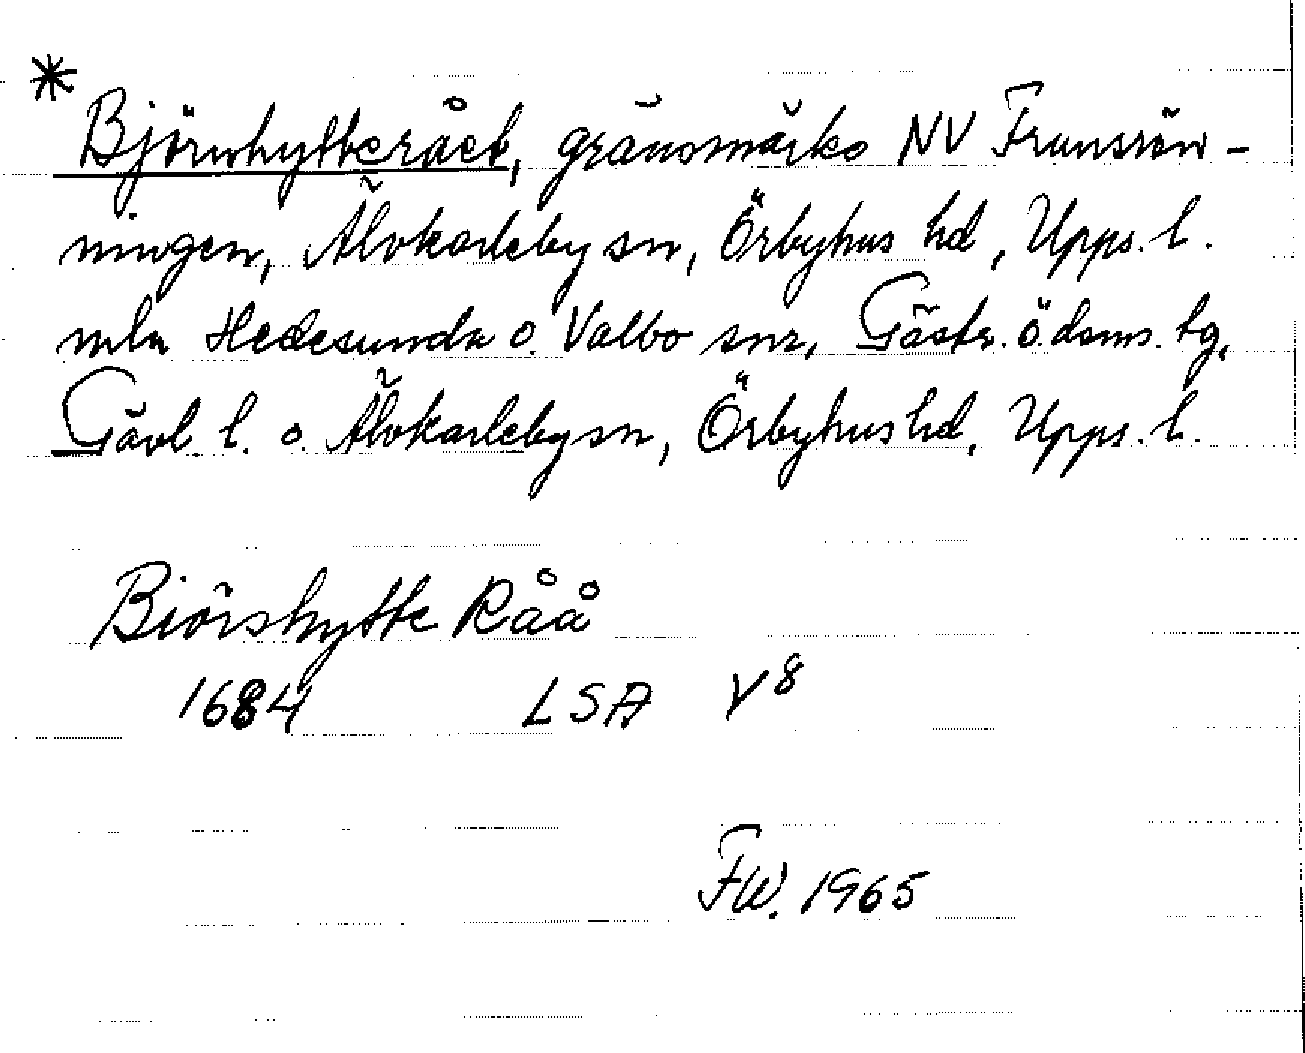 * Björnhytterået, gränsmärke NV Fransrön-
ningen, Älvkarleby sn, Örbyhus hd, Upps. l.
mln Hedesunda o. Valbo snr, Gästr. ö. doms. tg,
Gävl. l. o. Älvkarleby sn, Örbyhus hd, Upps. l.
Biörshytte Råå
1684 LSA V8
FW. 1965